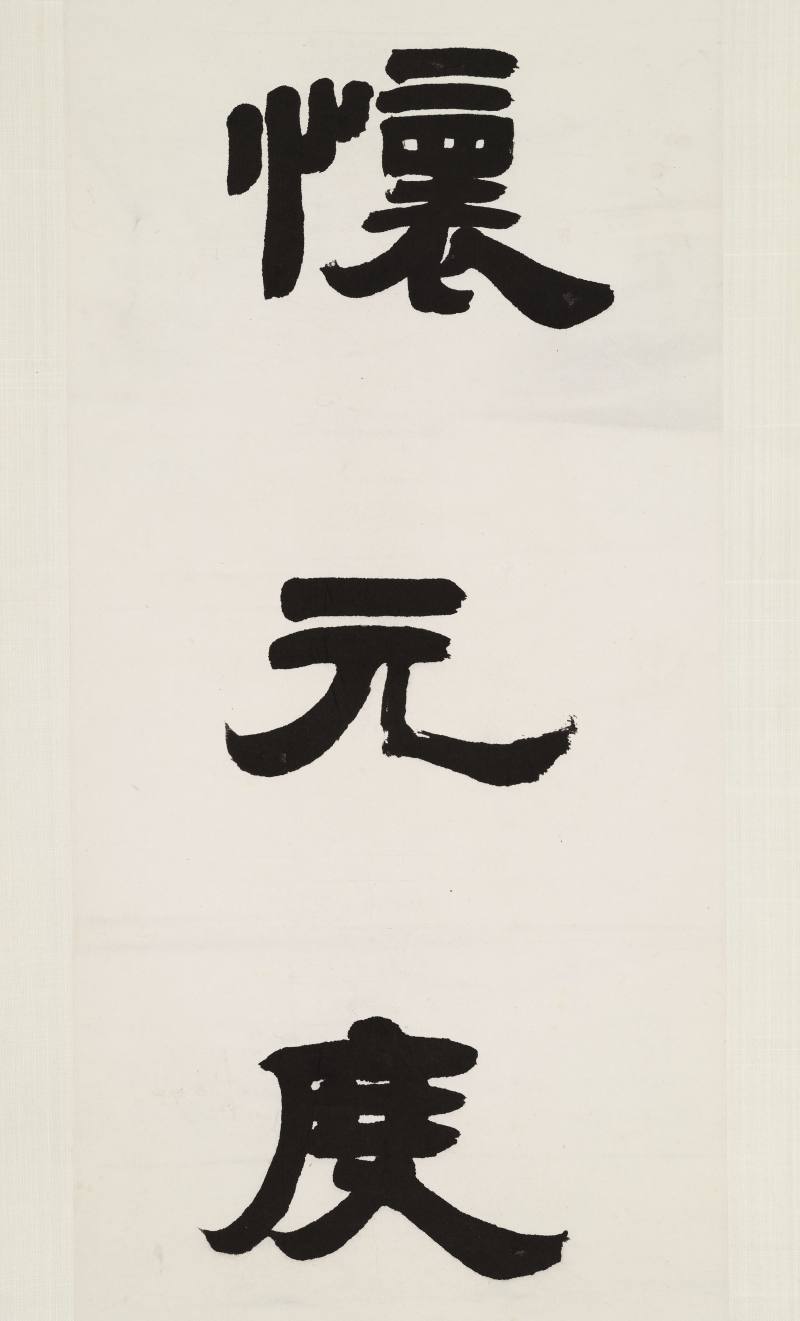 懷元度